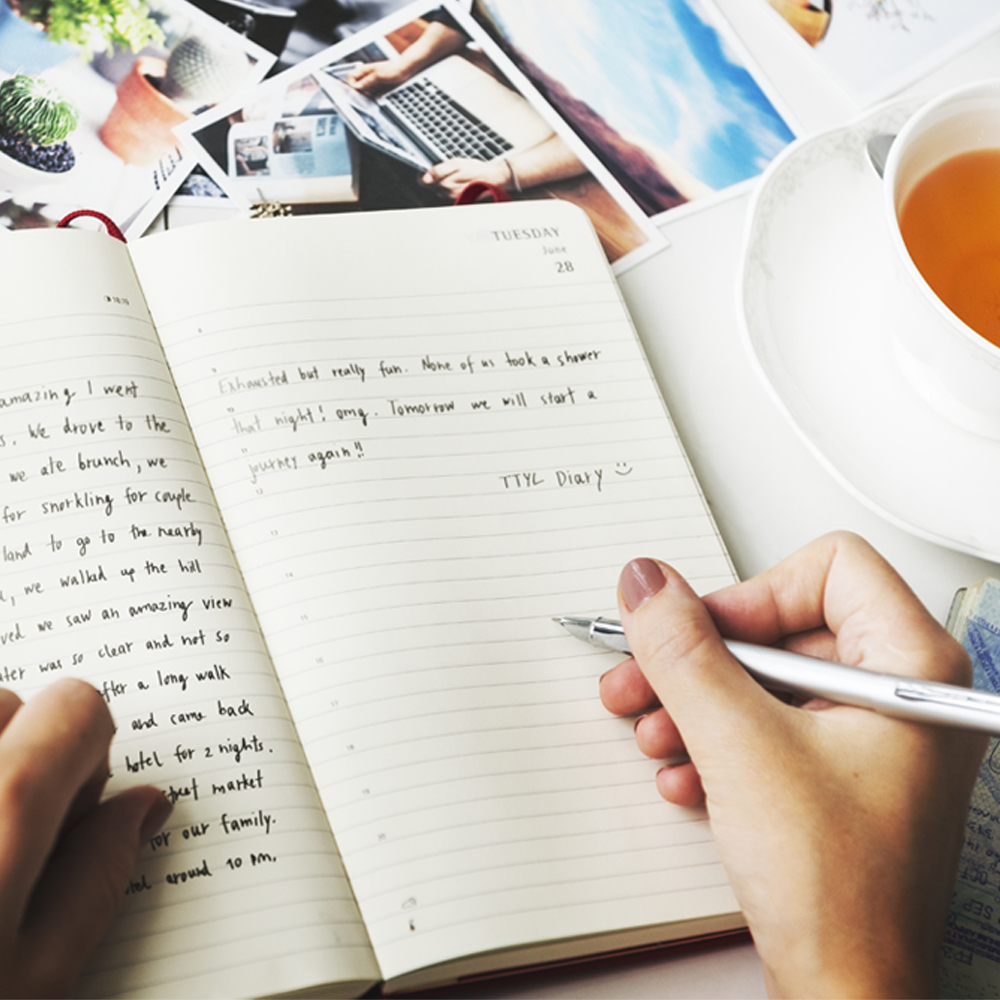 amazing I went
s. We drove to the
we ate brunch, we
for snorkling for couple
land to go to the nearby
, we walked up the hill
ved we saw an amazing view
ter was so clear and not so
after a long walk
and came back
hotel for 2 nights.
market
for our family.
tel around 10 pm.
TUESDAY
June
28
Exhausted but really fun. None of us took a shower
that night! omg. Tomorrow we will start a
journey again!!
TTYL Diary